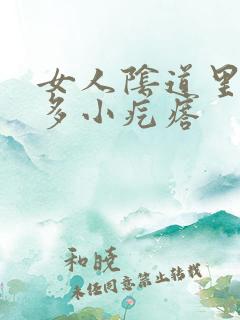 女人陰道里
多小疙瘩
和曉
未经同意禁止转载